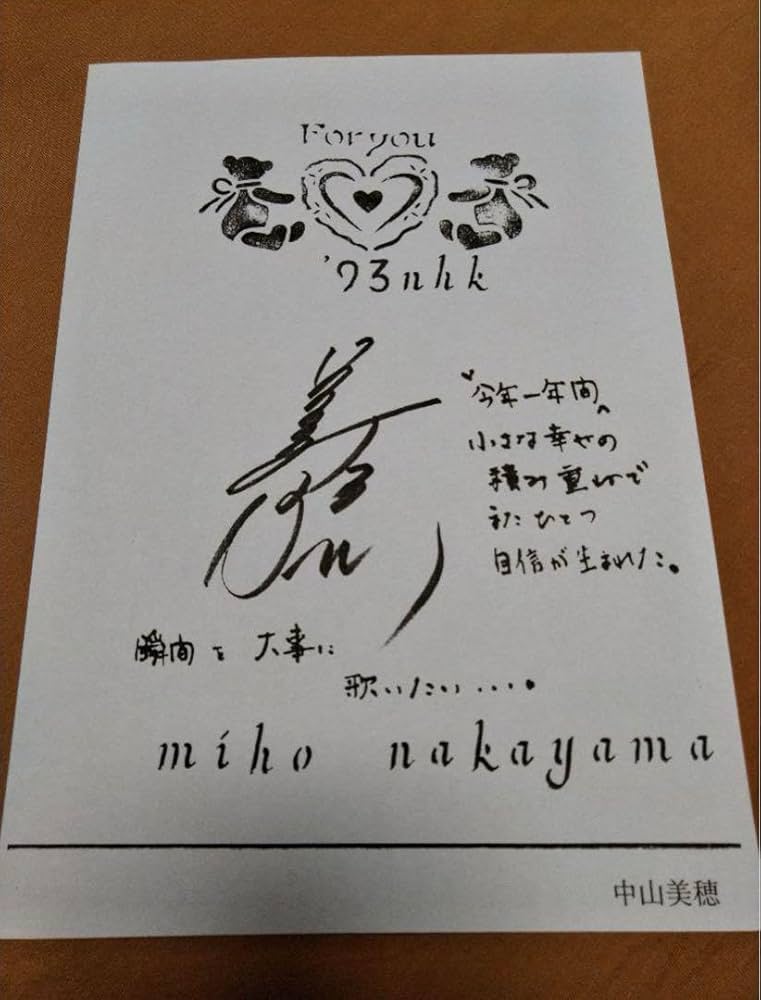 For you
'93 nhk
美穂
今年一年間
小さな幸せの
積み重ねで
またひとつ
自信が生まれた。
瞬間を大事に
歌いたい・・・・。
miho nakayama
中山美穂